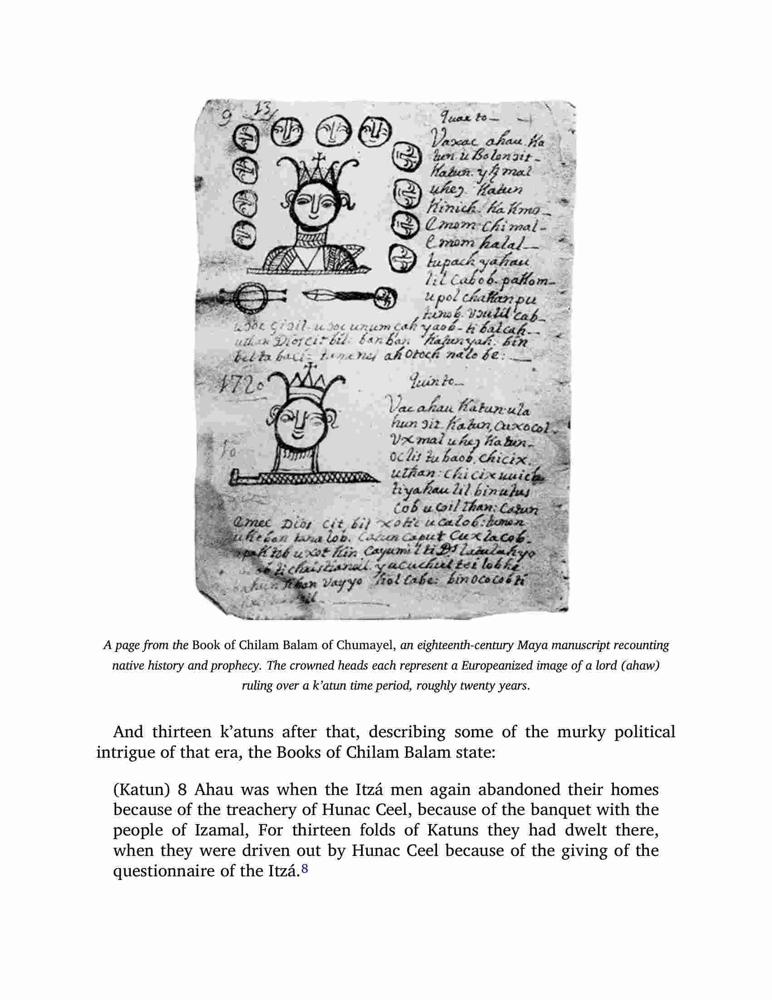 9 13
quar to—
Vaxac ahau. Ka
tun. u Bolon
Katun. mal
uhez Katun
Kinich. Ka Kmo—
Emom chimal—
Emom halal—
tupach yahau
lil Cabob. pakom—
upol chakanpu
cab—
u unum Cah yaob- ti balcah—
uthan Dios cit bil. ban ban Katunyah. bin
ah otoch nalo be: —
1720 quinto—
Vac ahau Katun ula
hun Katun, Cuxocol.
Vxmal uhez Katun—
oclis tu baob, chicix.
uthan: chicix uuich
tiyahau lil binulus
Cob u coil than: Catun
Emec Dios cit bil xotic u calob: tumen
u keban tanalob. Catun caput Cuxlacob.
uxot kin Cayumil ti Ds
ti christianoil. y
Vayyo hol cabe: bin ococob ti
A page from the Book of Chilam Balam of Chumayel, an eighteenth-century Maya manuscript recounting
native history and prophecy. The crowned heads each represent a Europeanized image of a lord (ahaw)
ruling over a k’atun time period, roughly twenty years.
And thirteen k’atuns after that, describing some of the murky political
intrigue of that era, the Books of Chilam Balam state:
(Katun) 8 Ahau was when the Itzá men again abandoned their homes
because of the treachery of Hunac Ceel, because of the banquet with the
people of Izamal, For thirteen folds of Katuns they had dwelt there,
when they were driven out by Hunac Ceel because of the giving of the
questionnaire of the Itzá.8